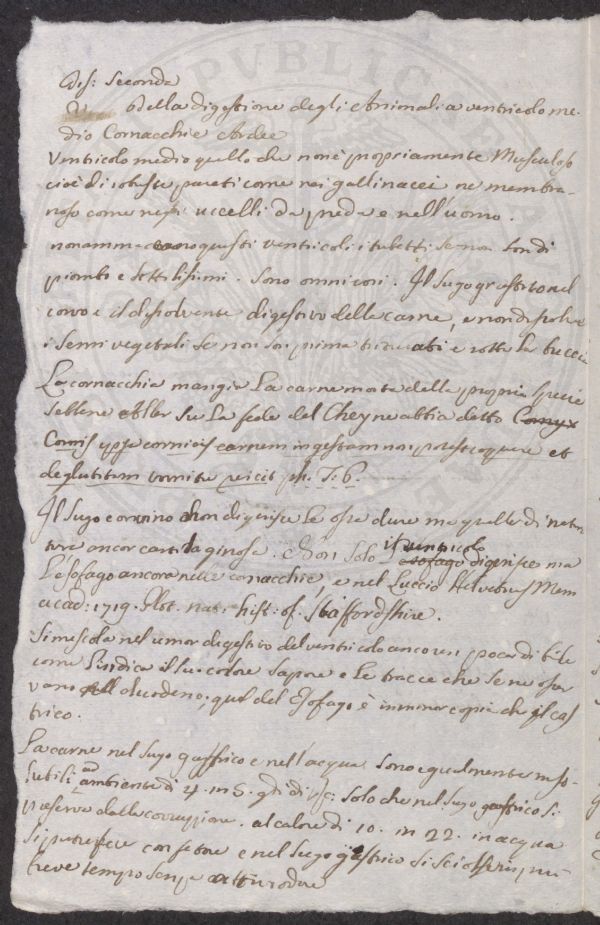 Dis: Seconda
Della digestione degli Animali a ventricolo me-
dio Cornacchie Ardee
Ventricolo medio quello che non è propriamente Muscoloso
cioè di robuste pareti come nei gallinacei ne membra-
noso come negli uccelli da preda e nell'uomo.
non ammaccano questi ventricoli i tubetti se non son di
piombo e sottilissimi. Sono omnivori. Il sugo gastrico nel
corvo è il dissolvente digestivo della carne, e non dissolve
i semi vegetali se non son prima triturati e rotta la buccia
La cornacchia mangia la carne morta della propria specie
sebbene Haller su la fede del Cheyne abbia detto
Cornix ipsa cornicis carnem ingestam non potest coquere et
deglutitam vomitu reicit ph. T. 6.
Il sugo corvino non digerisce le ossa dure ma quelle di na
tura ancor cartilaginosa. Non solo il ventricolo digerisce ma
l'esofago ancora nelle cornacchie, e nel Luccio Helvetius Mem
acad: 1719. Plot. nat. hist: of Staffordshire.
Si mescola nel umor digestivo del ventricolo ancora un poca di bile
come l'indica il suo colore sapore e le tracce che se ne osser
vano nell duodeno; quel del Esofago è in minor copia che il gas
trico.
La carne nel sugo gastrico e nell'acqua sono egualmente
ad ambiente di 4. in 5. gdi di solo che nel sugo gastrico si
preserva dalla corruzione. al calore di 10. in 22. in acqua
si putrefece con fetore e nel sugo gastrico si sciolse in più
breve tempo senza cattivo odore